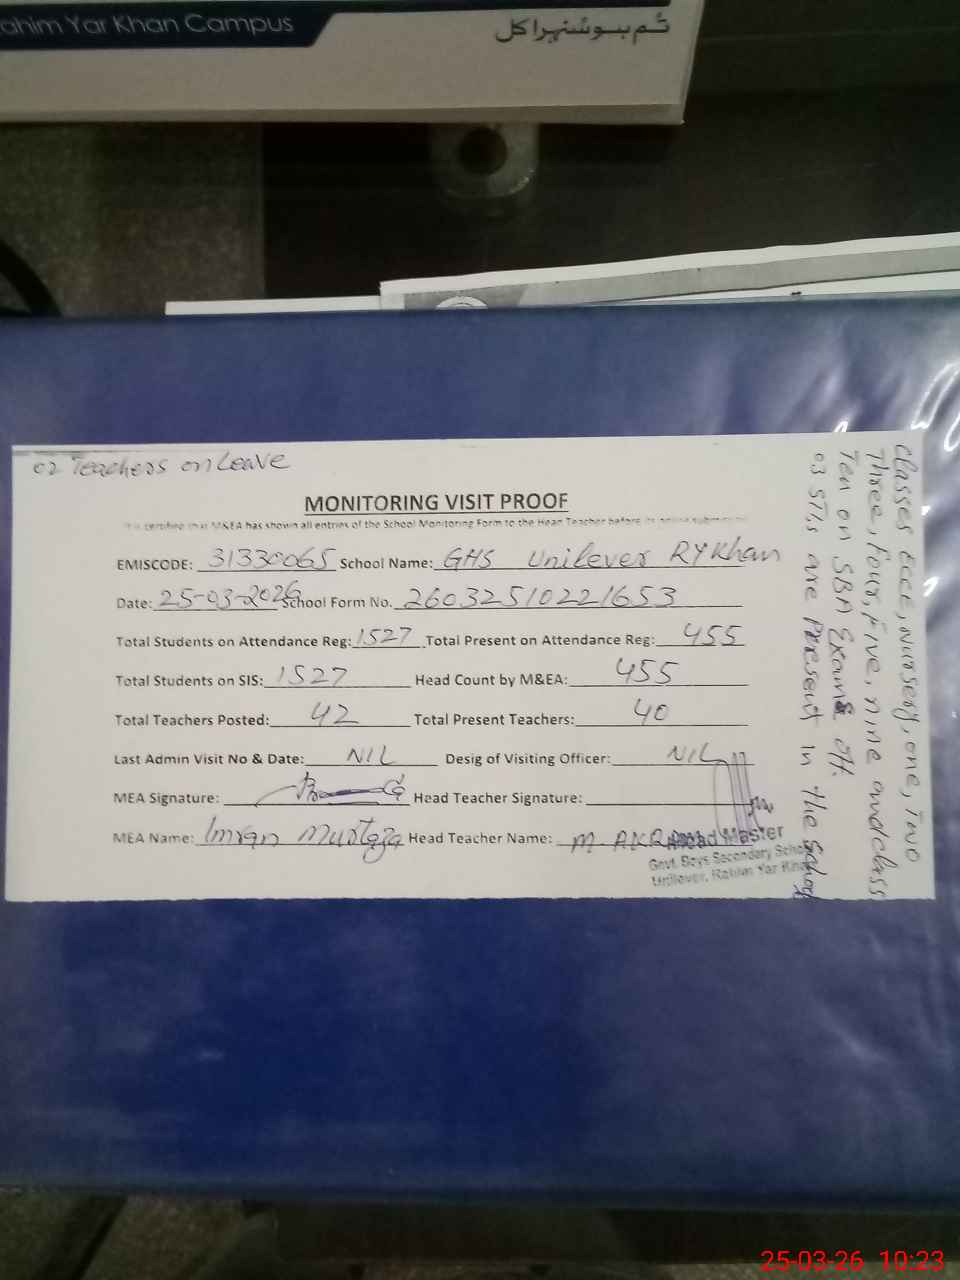 ahim Yar Khan Campus
تم ہو سنہرا کل
02 Teachers on Leave
MONITORING VISIT PROOF
It is certified that M&EA has shown all entries of the School Monitoring Form to the Head Teacher before its online
EMISCODE: 31330065 School Name: GHS Unilever RYKhan
Date: 25-03-2026 School Form No. 260325102221653
Total Students on Attendance Reg: 1527 Total Present on Attendance Reg: 455
Total Students on SIS: 1527 Head Count by M&EA: 455
Total Teachers Posted: 42 Total Present Teachers: 40
Last Admin Visit No & Date: NIL Desig of Visiting Officer: NIL
MEA Signature: Head Teacher Signature:
MEA Name: Imran Mustaza Head Teacher Name: M. AKR
Head Master
Govt. Boys Secondary School
Unilever, Rahim Yar Khan
Classes ECE, Nursery, one, Two
Three, Four, Five, nine and class
Ten on SBA Exam & JH.
03 STIs are Present in the school
25-03-26 10:23